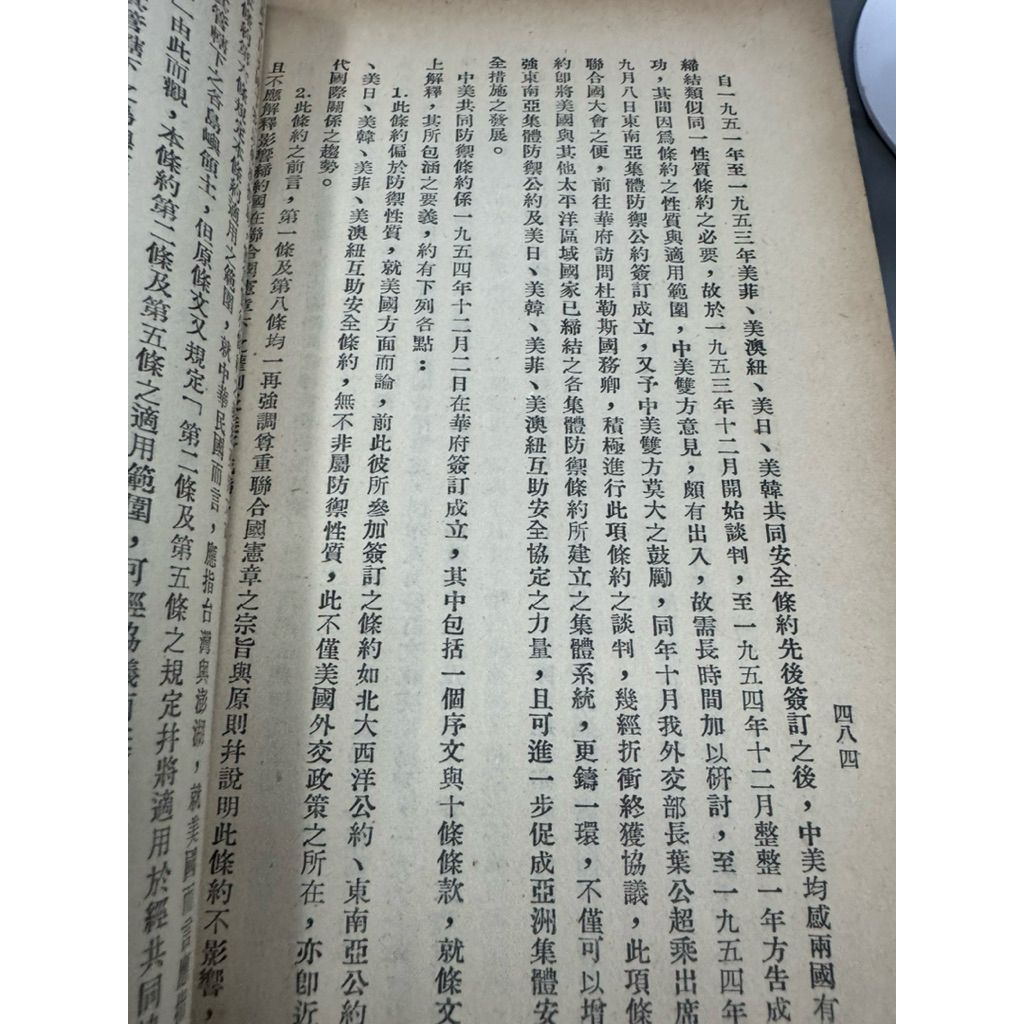 四八四
自一九五一年至一九五三年美菲、美澳紐、美日、美韓共同安全條約先後簽訂之後，中美均感兩國有
締結類似同一性質條約之必要，故於一九五三年十二月開始談判，至一九五四年十二月整整一年方告成
功，其間因爲條約之性質與適用範圍，中美雙方意見，頗有出入，故需長時間加以研討，至一九五四年
九月八日東南亞集體防禦公約簽訂成立，又予中美雙方莫大之鼓勵，同年十月我外交部長葉公超乘出席
聯合國大會之便，前往華府訪問杜勒斯國務卿，積極進行此項條約之談判，幾經折衝終獲協議，此項條
約卽將美國與其他太平洋區域國家已締結之各集體防禦條約所建立之集體系統，更鑄一環，不僅可以增
強東南亞集體防禦公約及美日、美韓、美菲、美澳紐互助安全協定之力量，且可進一步促成亞洲集體安
全措施之發展。
中美共同防禦條約係一九五四年十二月二日在華府簽訂成立，其中包括一個序文與十條條款，就條文
上解釋，其所包涵之要義，約有下列各點：
1.此條約偏於防禦性質，就美國方面而論，前此彼所參加簽訂之條約如北大西洋公約、東南亞公約
、美日、美韓、美菲、美澳紐互助安全條約，無不非屬防禦性質，此不僅美國外交政策之所在，亦卽近
代國際關係之趨勢。
2.此條約之前言，第一條及第八條均一再強調尊重聯合國憲章之宗旨與原則幷說明此條約不影響，
且不應解釋影響締約國在聯合國憲章
條約適用之範圍，就中華民國而言，應指台灣與澎湖，就美國而言應指
管轄下之各島嶼領土，但原條文又規定「第二條及第五條之規定幷將適用於經共同
」由此而觀，本條約第二條及第五條之適用範圍，可經協議而